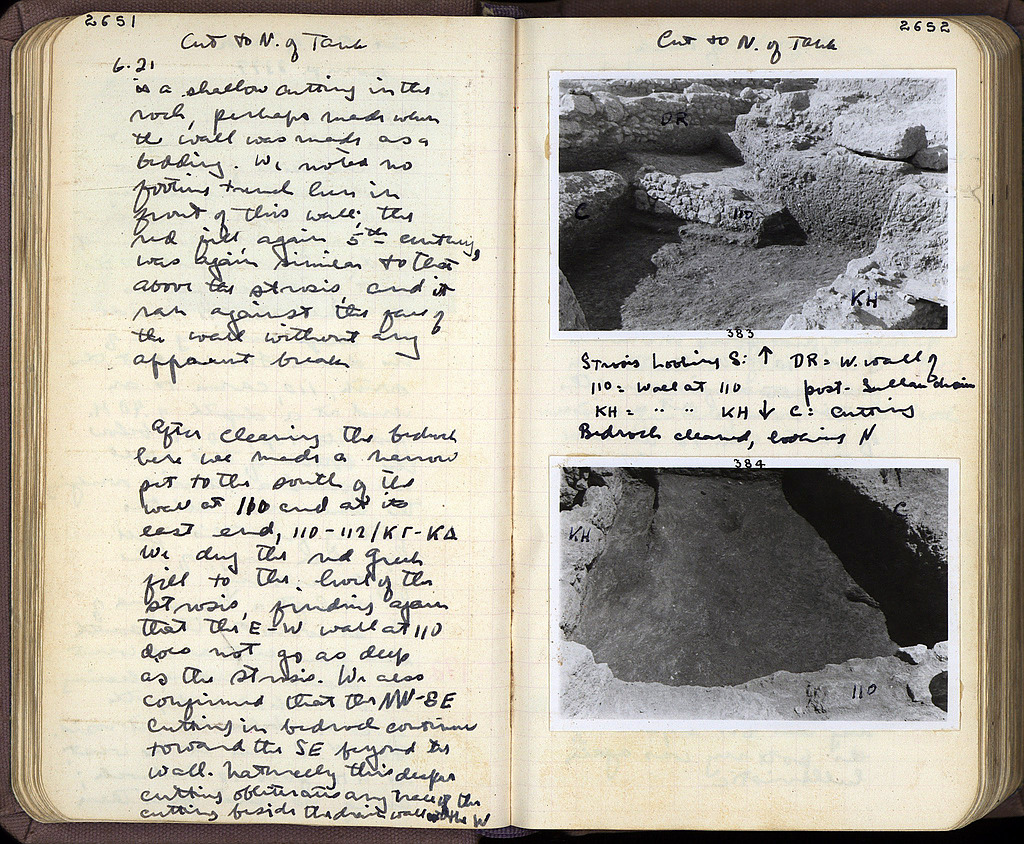 2651
Cut to N. of Tank
6.21
is a shallow cutting in the
rock, perhaps made when
the wall was made as a
bedding. We noted no
footing trench here in
front of this wall; the
red fill, again 5th century,
was again similar to that
above the strosis, and it
ran against the face of
the wall without any
apparent break
After clearing the bedrock
here we made a narrow
pit to the south of the
wall at 110 and at its
east end, 110-112/KΓ-KΔ
We dug the red Greek
fill to the level of the
strosis, finding again
that the E-W wall at 110
does not go as deep
as the strosis. We also
confirmed that the NW-SE
cutting in bedrock continues
toward the SE beyond the
wall. Naturally this deeper
cutting obliterates any trace of the
cutting beside the drain wall the W
2652
Cut to N. of Tank
DR
C
110
KH
383
Strosis looking S: ↑ DR = W. wall of
110 = Wall at 110 post-Sullan drain
KH = " " KH ↓ C: cutting
Bedrock cleared, looking N
384
KH
C
110